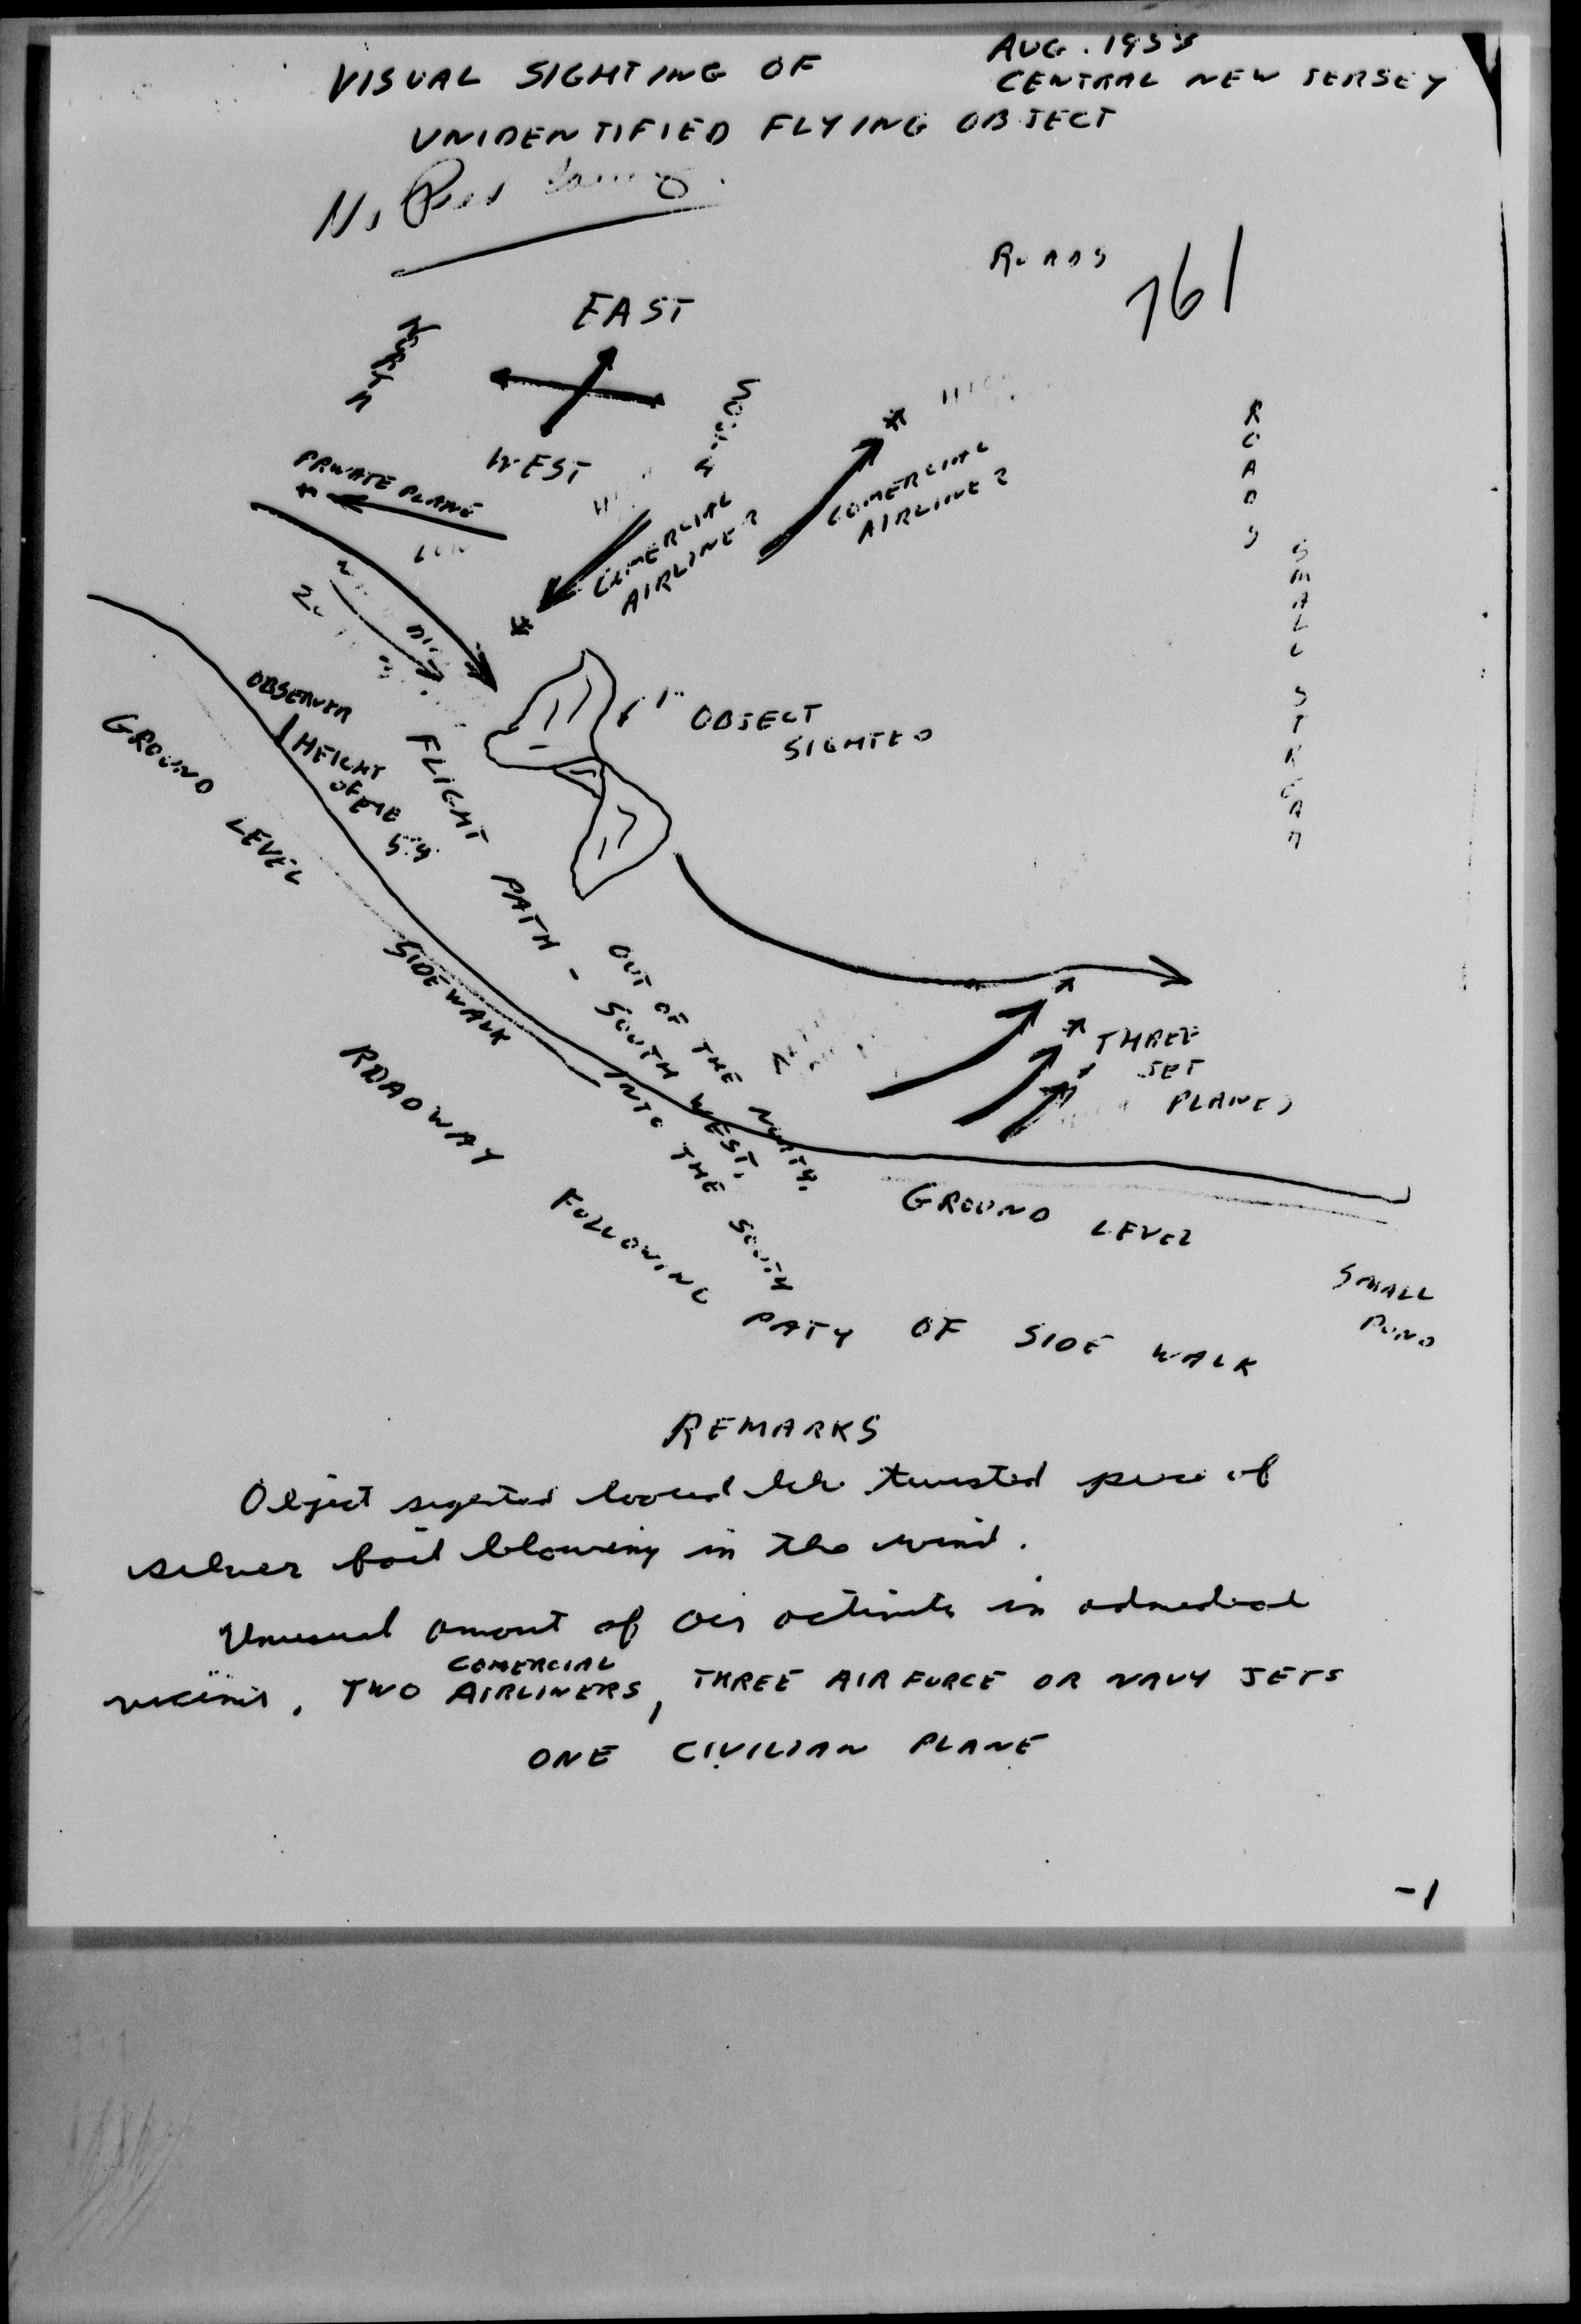 AUG. 195
CENTRAL NEW JERSEY
VISUAL SIGHTING OF
UNIDENTIFIED FLYING OBJECT
ROADS
761
EAST
NORTH
SOUTH
WEST
PRIVATE PLANE
LOW
COMERCIAL
AIRLINER
COMERCIAL
AIRLINER
ROADS
SMALL STREAM
OBSERVER
HEIGHT
OF
OBJECT
SIGHTED
GROUND LEVEL
FLIGHT PATH - SOUTH WEST.
OUT OF THE NORTH.
INTO THE SOUTH
SIDEWALK
THREE
JET
PLANES
GROUND LEVEL
ROADWAY FOLLOWING PATY OF SIDE WALK
SMALL
POND
REMARKS
Object sighted looked like twisted piece of
silver foil blowing in the wind.
Unusual amount of air activity in
COMERCIAL
TWO AIRLINERS, THREE AIR FORCE OR NAVY JETS
ONE CIVILIAN PLANE
-1